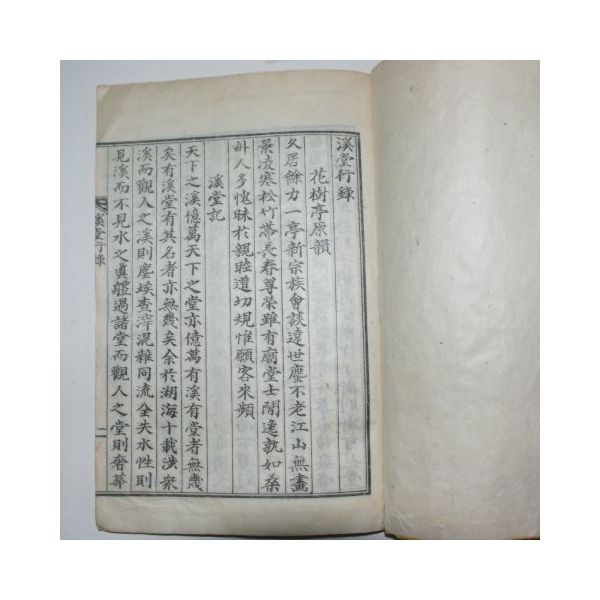 溪堂行錄
花樹亭原韻
久居餘力一亭新宗族會談遠世塵不老江山無盡
景凌寒松竹帶長春尊榮雖有廟堂士閒逸孰如桑
斟人多愧昧於親睦道切規惟願客來頻
溪堂記
天下之溪億萬天下之堂亦億萬有溪有堂者無幾
矣有溪堂有其名者亦無幾矣余於湖海十載涉衆
溪而觀人之溪則塵埃查滓混雜同流全失水性則
見溪而不見水之眞軆過諸堂而觀人之堂則奢華
溪堂行錄
二